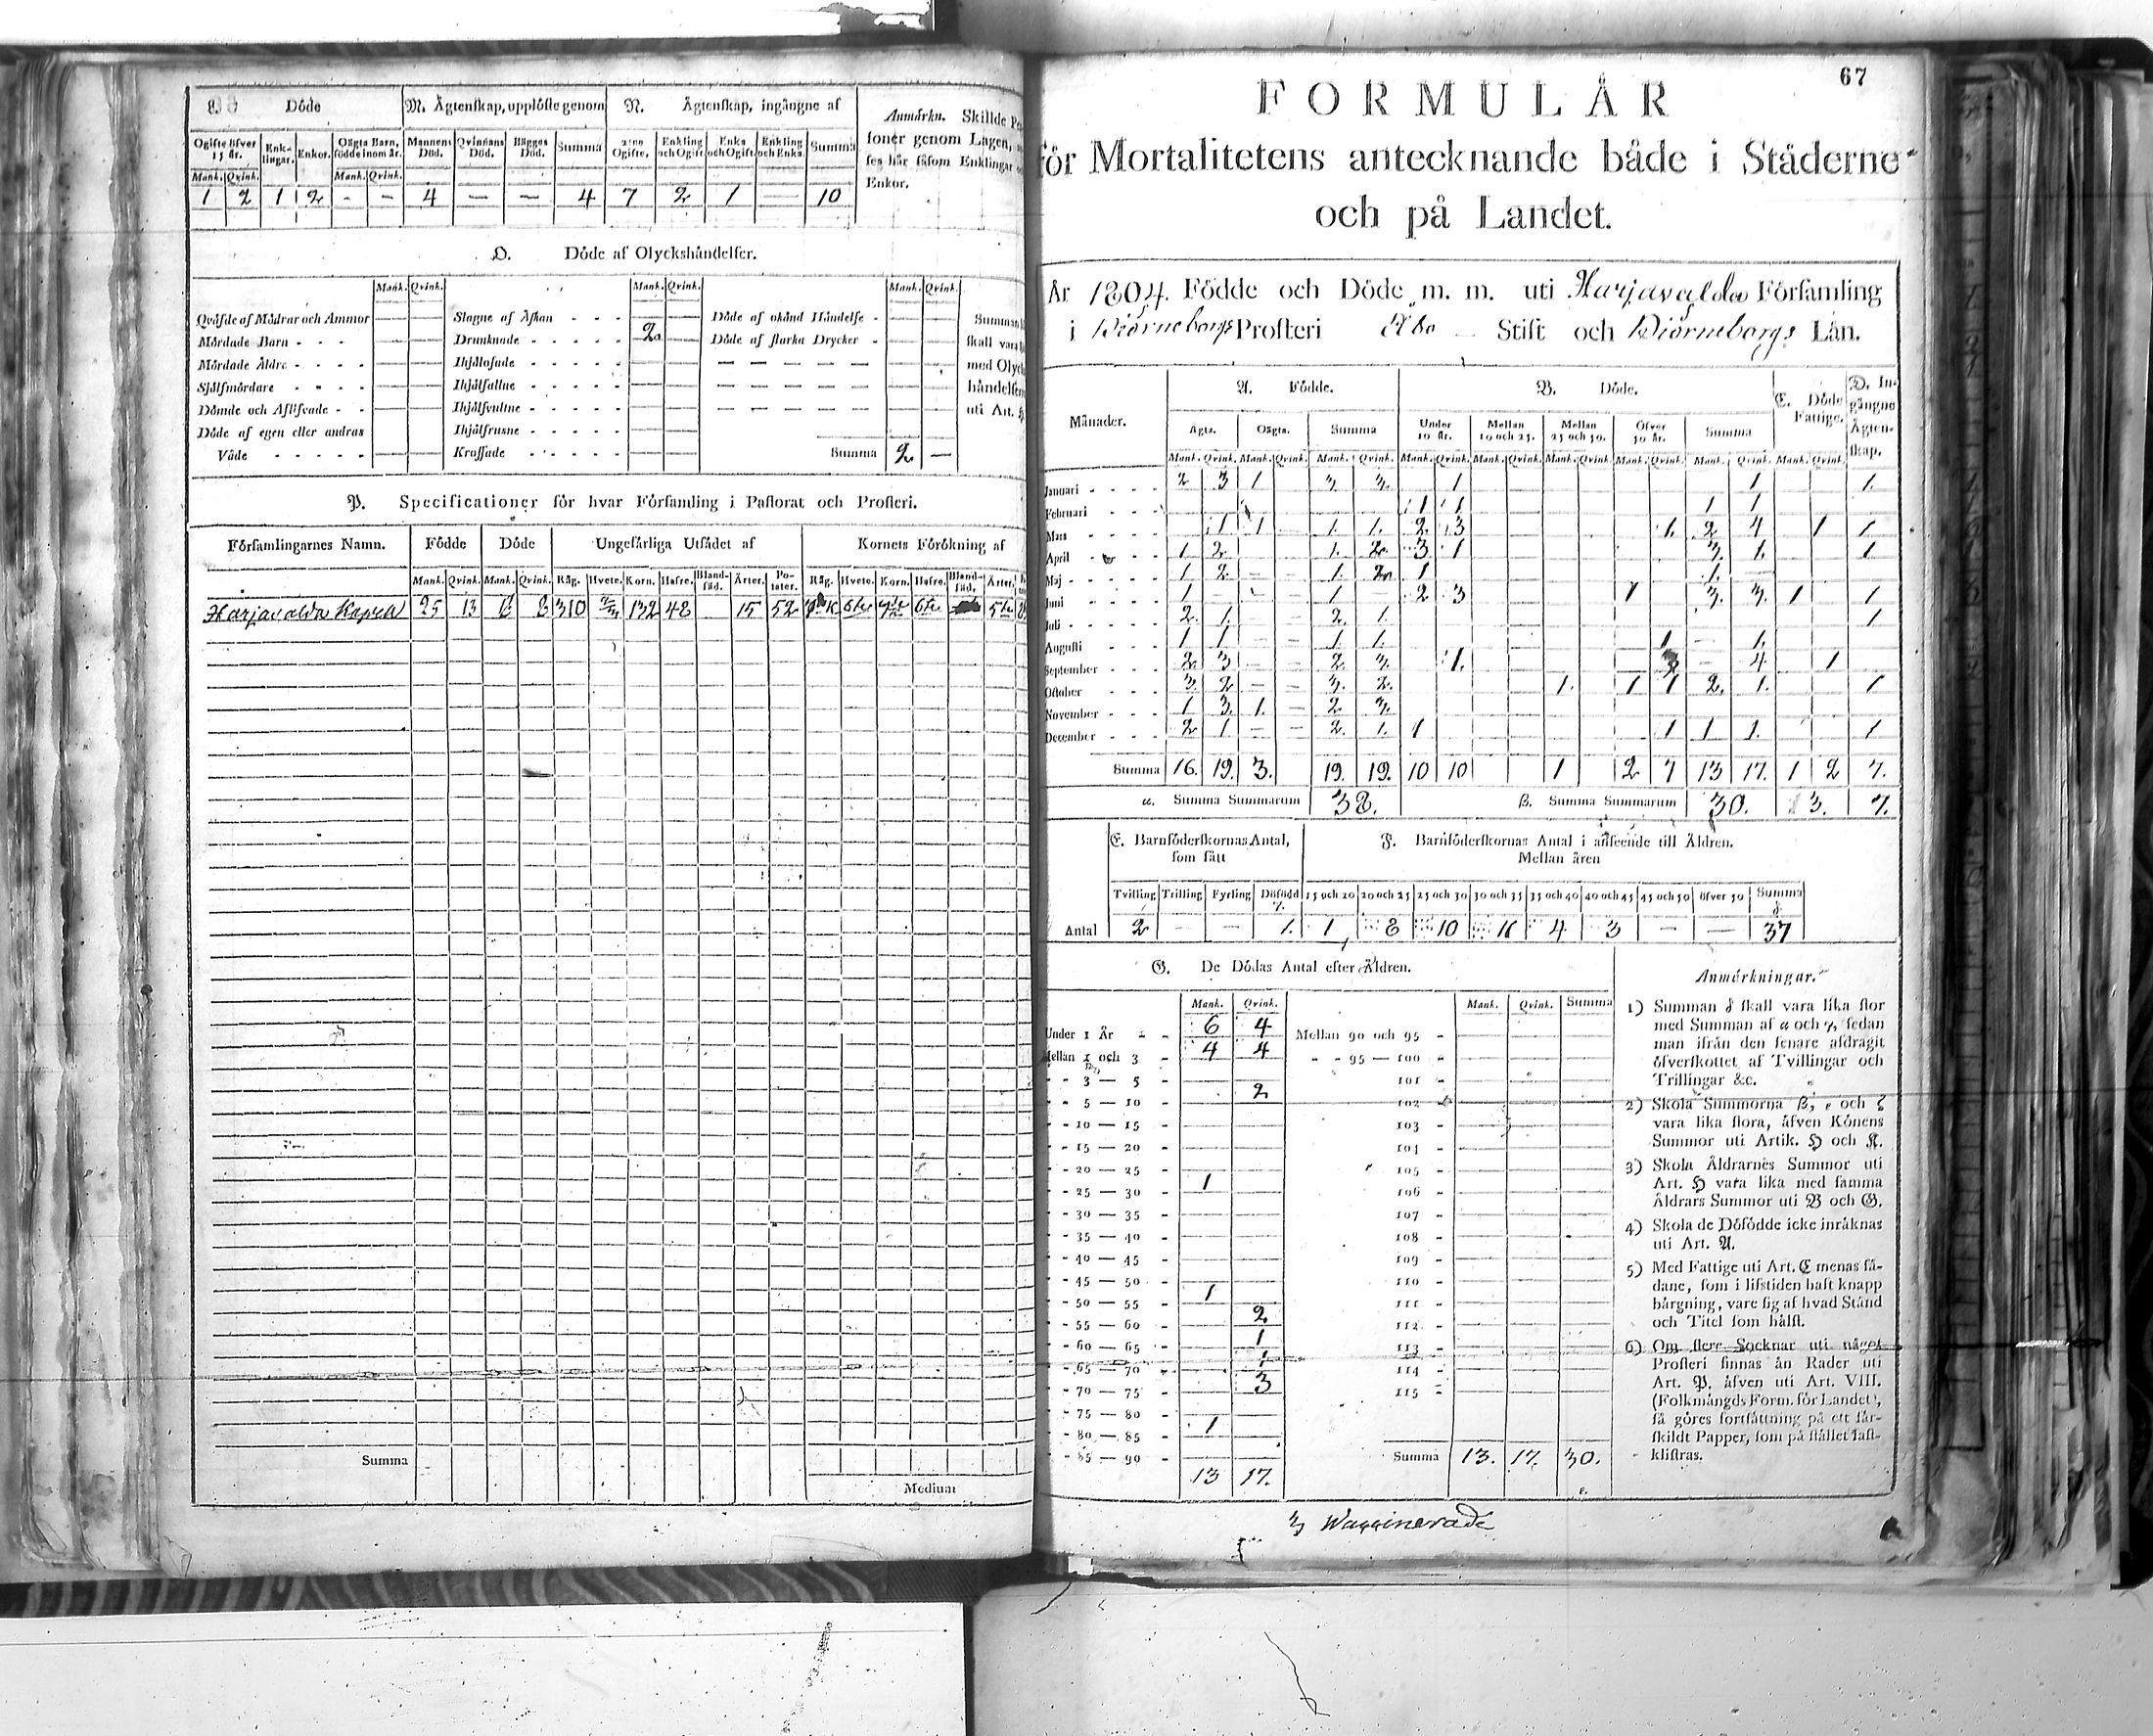 Döde
M. Ägtenskap, upplöste genom
N. Ägtenskap, ingångne af
Anmärkn. Skillde Per
soner genom Lagen,
ses här såsom Enklingar
Enkor.
Ogifte öfver 15 år.
Enklingar.
Enkor.
Oägta Barn, födde inom år.
Mannens Död.
Qvinnans Död.
Bägges Död.
Summa
2:ne Ogifte.
Enkling och Ogift
Enka och Ogift
Enkling och Enka.
Summa
Mank. Qvink. Mank. Qvink.
1 2 1 2 - - 4 — — 4 7 2 1 — 10
O. Döde af Olyckshändelser.
Mank. Qvink. Mank. Qvink. Mank. Qvink.
Qväfde af Mödrar och Ammor
Mördade Barn - - -
Mördade Äldre - - - -
Sjelfmördare - - - -
Dömde och Aflifvade - -
Döde af egen eller andras
Våde - - - - -
Slagne af Åskan - - -
Drunknade - - - - - 2
Ihjälosade - - - - -
Ihjälfallne - - - - -
Ihjälsvultne - - - - -
Ihjälfrusne - - - - -
Krossade - - - - -
Döde af okänd Händelse -
Döde af starka Drycker -
Summa 2 —
Summan
skall vara
med Olyck
händelser
uti Art.
P. Specificationer för hvar Församling i Pastorat och Prosteri.
Församlingarnes Namn. Födde Döde Ungefärliga Utsädet af Kornets Förökning af
Mank. Qvink. Mank. Qvink. Råg. Hvete. Korn. Hafre. Blandsäd. Ärter. Potater. Råg. Hvete. Korn. Hafre. Blandsäd. Ärter.
Harjavalda Kapell 25 13 310 132 48 15 52
Summa
Medium
67
FORMULÄR
för Mortalitetens antecknande både i Städerne
och på Landet.
År 1804. Födde och Döde m. m. uti Harjavalda Församling
i Biörneborgs Prosteri Åbo Stift och Biörneborgs Län.
Månader.
A. Födde.
B. Döde.
C. Döde Fattige.
D. Ingångne Ägtenskap.
Ägta. Oägta. Summa Under 10 år. Mellan 10 och 25. Mellan 25 och 50. Öfver 50 år. Summa
Mank. Qvink. Mank. Qvink. Mank. Qvink. Mank. Qvink. Mank. Qvink. Mank. Qvink. Mank. Qvink. Mank. Qvink. Mank. Qvink.
Januari - - - - 2 3 1 3 3 1 1 1
Februari - - - 1 1 1 1
Mars - - - - 1 1 - 1 1 2 3 1 2 4 1 1
April - - - 1 2 1 2 3 1 3 1 1
Maj - - - - - 1 2 - - 1 2 1 1 -
Juni - - - - 1 - - - 1 - 2 3 1 3 3 1 1
Juli - - - - - 2 1 2 1 1
Augusti - - - 1 1 - - 1 1 1 - 1
September - - - 2 3 - - 2 3 1 - 4 1
October - - - 3 2 - - 3 2 1 1 1 2 1 1
November - - - 1 3 1 - 2 3
December - - - 2 1 - - 2 1 1 1 1 1 1
Summa 16. 19. 3. 19. 19. 10 10 1 2 7 13 17. 1 2 7.
α. Summa Summarum 38. β. Summa Summarum 30. 3. 7.
E. Barnföderskornas Antal, som fått
F. Barnföderskornas Antal i anseende till Åldren.
Mellan åren
Tvilling Trilling Fyrling Dödfödd 15 och 20 20 och 25 25 och 30 30 och 35 35 och 40 40 och 45 45 och 50 öfver 50 Summa
Antal 2 — — 1 1 8 10 4 3 — — 37
G. De Dödas Antal efter Åldren.
Mank. Qvink. Mank. Qvink. Summa
Under 1 År - - 6 4 Mellan 90 och 95 -
Mellan 1 och 3 - 4 4 - - 95 — 100 -
- - 3 — 5 - 2 101 -
- - 5 — 10 - 102 -
- - 10 — 15 - 103 -
- - 15 — 20 - 104 -
- - 20 — 25 - 105 -
- - 25 — 30 - 1 106 -
- - 30 — 35 - 107 -
- - 35 — 40 - 108 -
- - 40 — 45 - 109 -
- - 45 — 50 - 110 -
- - 50 — 55 - 1 111 -
- - 55 — 60 - 2 112 -
- - 60 — 65 - 1 113 -
- - 65 — 70 - 1 114 -
- - 70 — 75 - 3 115 -
- - 75 — 80 -
- - 80 — 85 - 1
- - 85 — 90 - Summa 13. 17. 30.
13 17.
Anmärkningar.
1) Summan δ skall vara lika stor
med Summan af α och γ, sedan
man ifrån den senare afdragit
öfverskottet af Tvillingar och
Trillingar &c.
2) Skola Summorna β, ε och ζ
vara lika stora, äfven Könens
Summor uti Artik. H och K.
3) Skola Åldrarnes Summor uti
Art. H vara lika med samma
Åldrars Summor uti B och G.
4) Skola de Döfödde icke inräknas
uti Art. A.
5) Med Fattige uti Art. C menas så-
dane, som i lifstiden haft knapp
bärgning, vare sig af hvad Stånd
och Titel som hälst.
6) Om flere Socknar uti något
Prosteri finnas än Rader uti
Art. P. äfven uti Art. VIII.
(Folkmängds Form. för Landet),
så göres fortsättning på ett sär-
skildt Papper, som på stället fast-
klistras.
3 Waccinerade